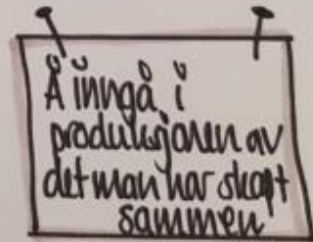 Å inngå i
produksjonen av
det man har skapt
sammen